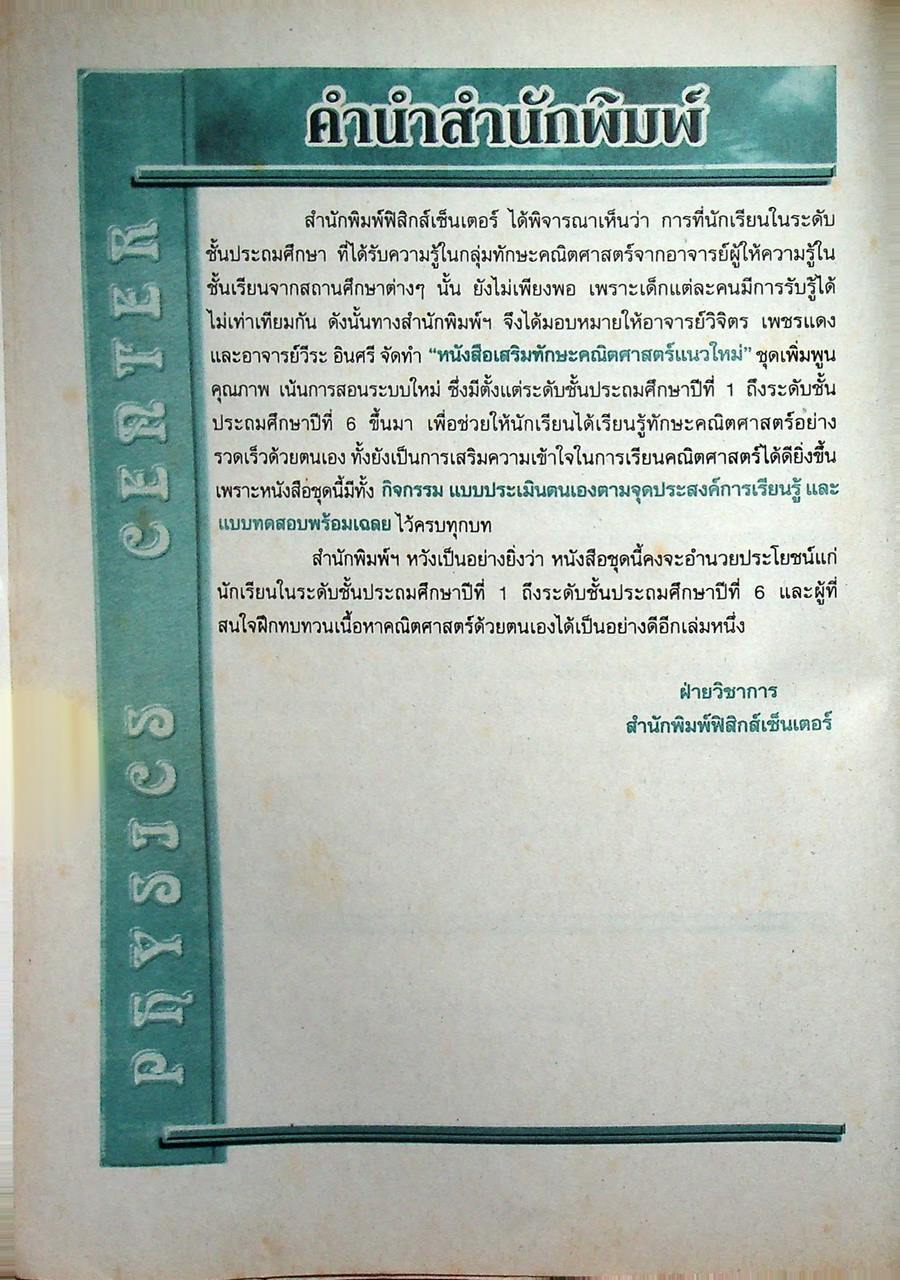 คำนำสำนักพิมพ์
สำนักพิมพ์ฟิสิกส์เซ็นเตอร์ ได้พิจารณาเห็นว่า การที่นักเรียนในระดับ
ชั้นประถมศึกษา ที่ได้รับความรู้ในกลุ่มทักษะคณิตศาสตร์จากอาจารย์ผู้ให้ความรู้ใน
ชั้นเรียนจากสถานศึกษาต่างๆ นั้น ยังไม่เพียงพอ เพราะเด็กแต่ละคนมีการรับรู้ได้
ไม่เท่าเทียมกัน ดังนั้นทางสำนักพิมพ์ฯ จึงได้มอบหมายให้อาจารย์วิจิตร เพชรแดง
และอาจารย์วีระ อินศรี จัดทำ “หนังสือเสริมทักษะคณิตศาสตร์แนวใหม่” ชุดเพิ่มพูน
คุณภาพ เน้นการสอนระบบใหม่ ซึ่งมีตั้งแต่ระดับชั้นประถมศึกษาปีที่ 1 ถึงระดับชั้น
ประถมศึกษาปีที่ 6 ขึ้นมา เพื่อช่วยให้นักเรียนได้เรียนรู้ทักษะคณิตศาสตร์อย่าง
รวดเร็วด้วยตนเอง ทั้งยังเป็นการเสริมความเข้าใจในการเรียนคณิตศาสตร์ได้ดียิ่งขึ้น
เพราะหนังสือชุดนี้มีทั้ง กิจกรรม แบบประเมินตนเองตามจุดประสงค์การเรียนรู้ และ
แบบทดสอบพร้อมเฉลย ไว้ครบทุกบท
สำนักพิมพ์ฯ หวังเป็นอย่างยิ่งว่า หนังสือชุดนี้คงจะอำนวยประโยชน์แก่
นักเรียนในระดับชั้นประถมศึกษาปีที่ 1 ถึงระดับชั้นประถมศึกษาปีที่ 6 และผู้ที่
สนใจฝึกทบทวนเนื้อหาคณิตศาสตร์ด้วยตนเองได้เป็นอย่างดีอีกเล่มหนึ่ง
ฝ่ายวิชาการ
สำนักพิมพ์ฟิสิกส์เซ็นเตอร์
PHYSICS CENTER